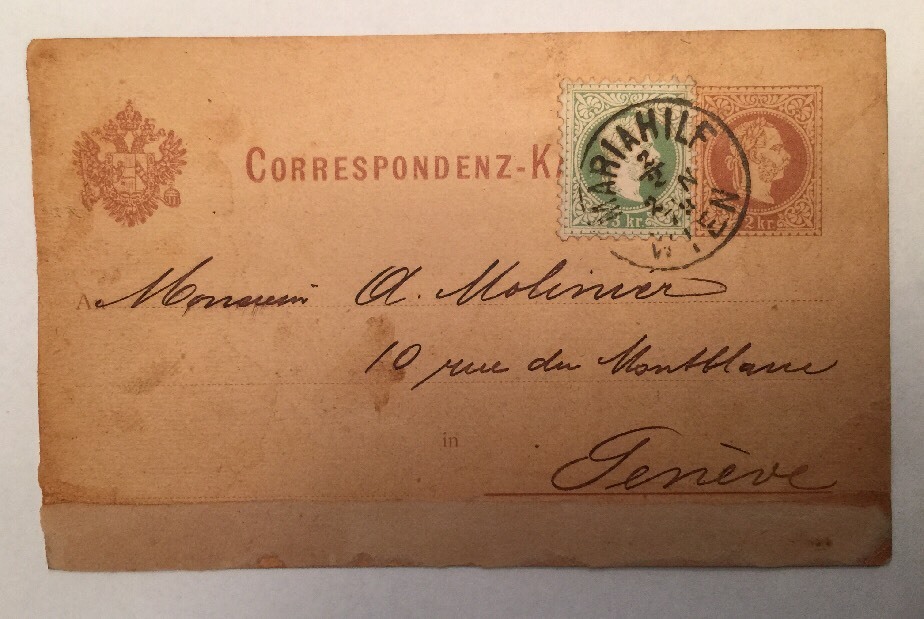 CORRESPONDENZ-KA
MARIAHILF
WIEN
3 kr.
2 kr.
A Monsieur A. Molinier
10 rue du Montblanc
in
Genève